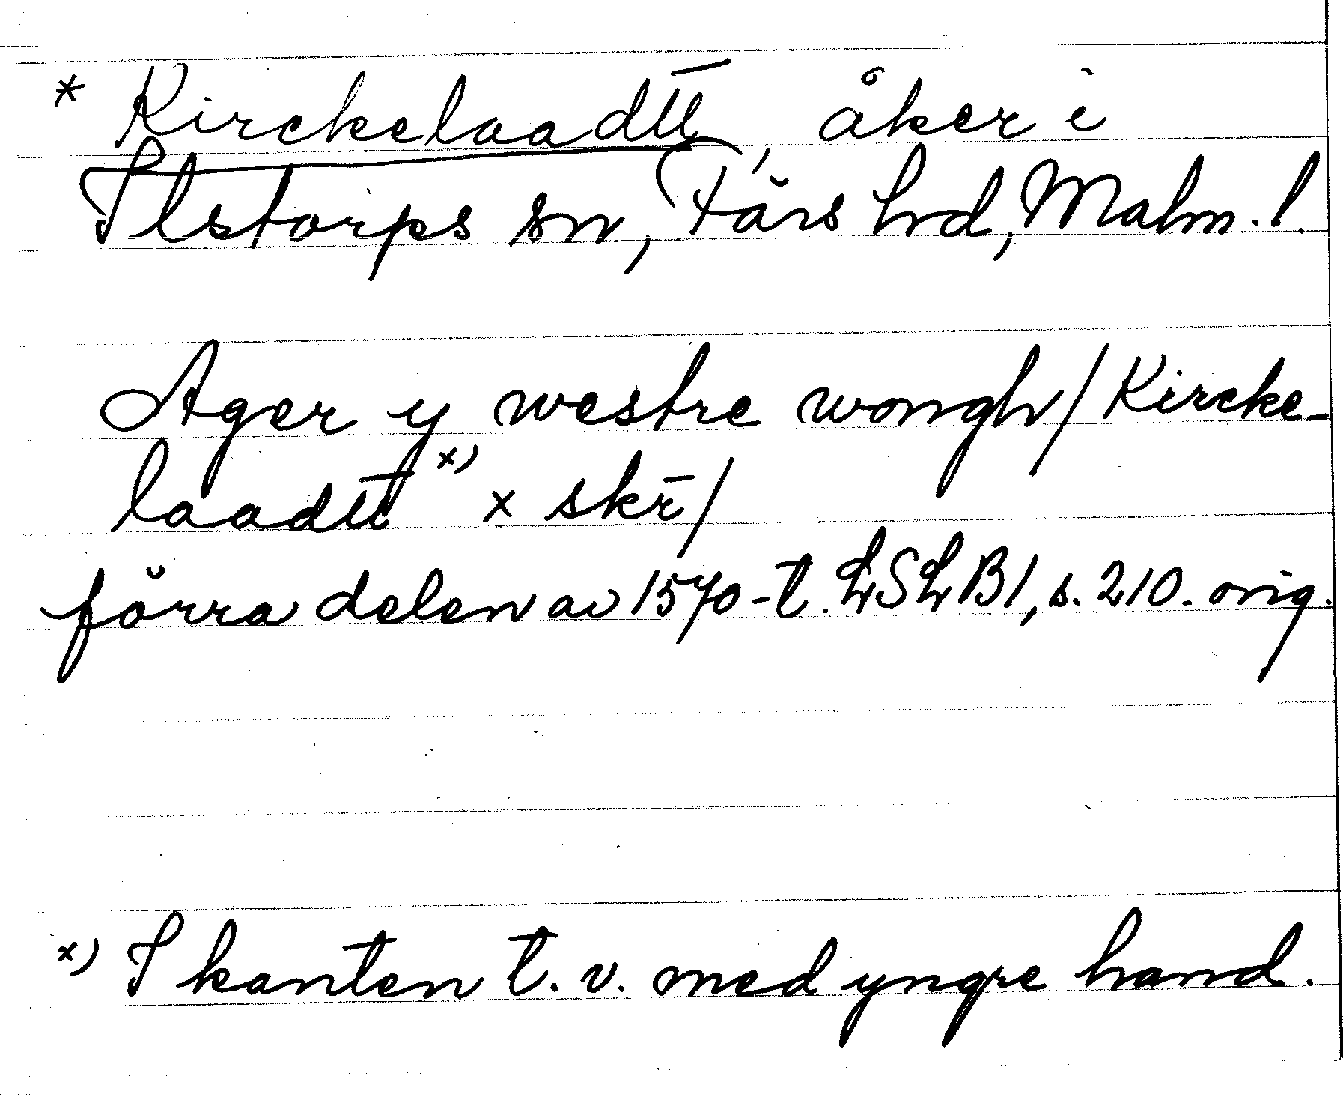 * Kirckelaadtt, åker i
Ilstorps sn, Färs hd, Malm. l.
Ager y westre wongh / Kircke-
laadtt x) x skr̄ /
förra delen av 1570-t. LSLB1, s. 210. orig.
x) I kanten t. v. med yngre hand.